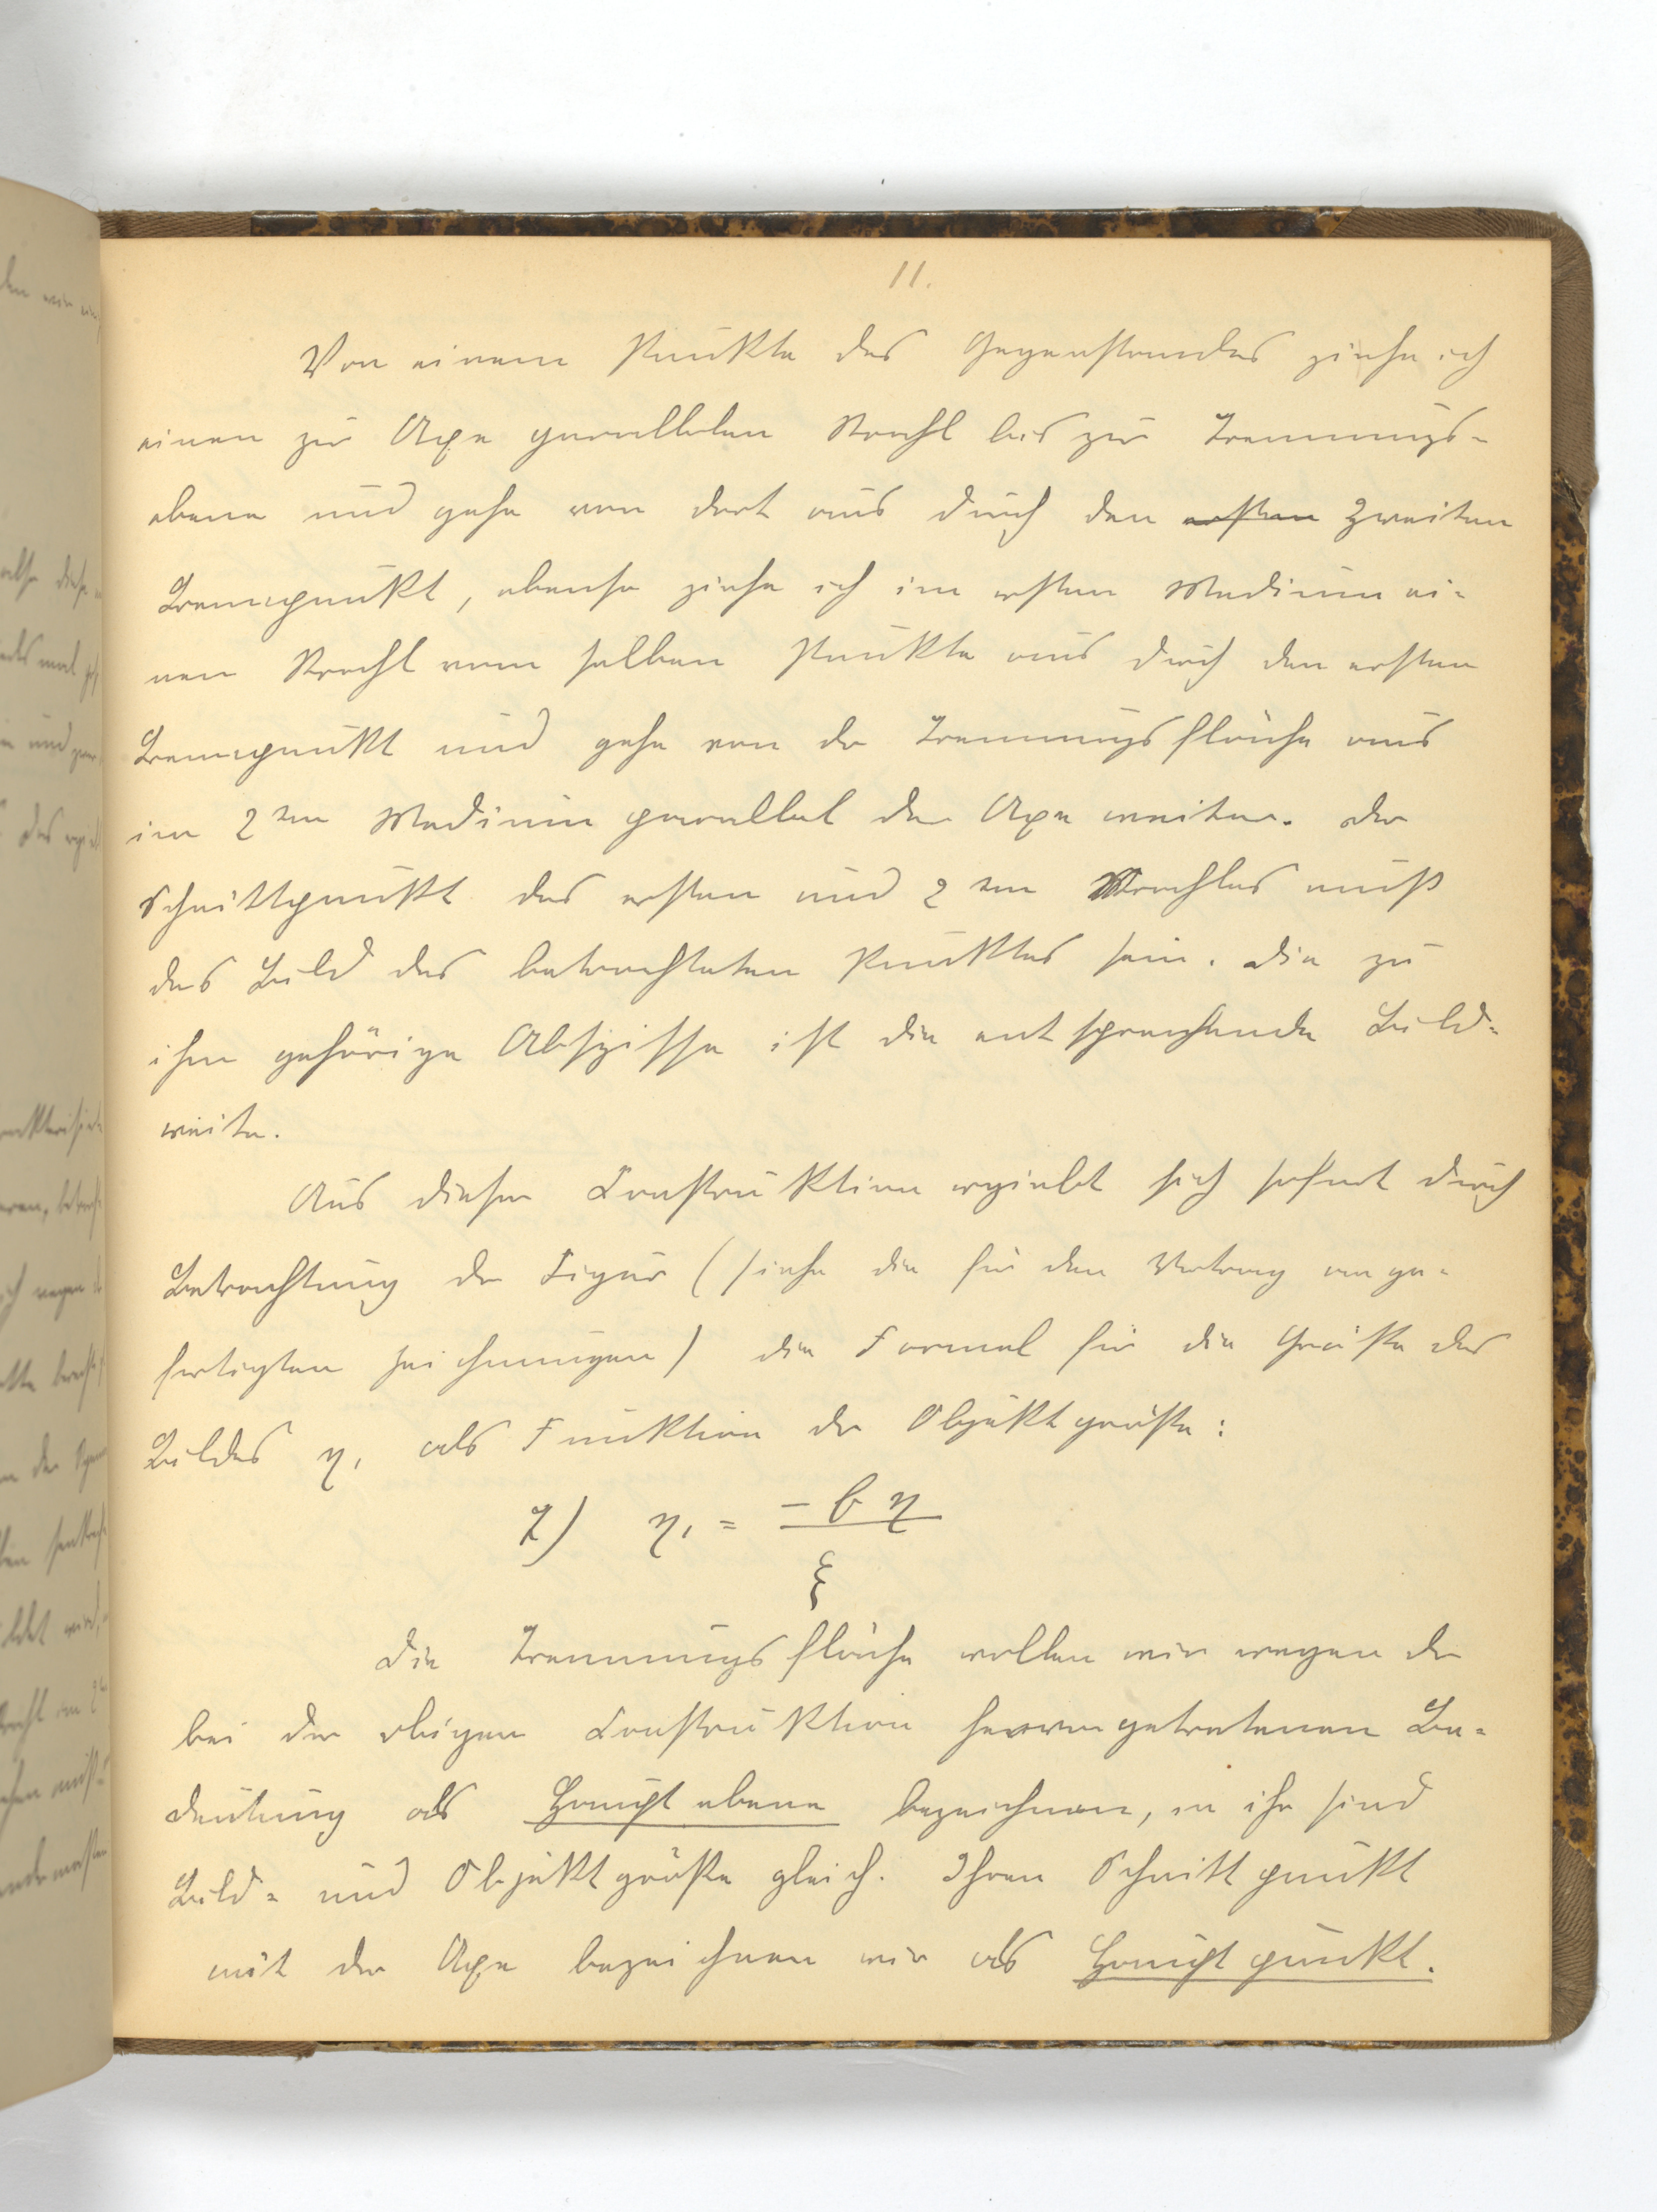 11.
Von einem Punkte des Gegenstandes ziehe ich
einen zur Axe parallelen Strahl bis zur Trennungs-
ebene und gehe von dort aus durch den ersten zweiten
Brennpunkt, ebenso ziehe ich im ersten Medium ei-
nen Strahl vom selben Punkte aus durch den ersten
Brennpunkt und gehe von der Trennungsfläche aus
im 2ten Medium parallel der Axe weiter. Der
Schnittpunkt des ersten und 2ten Strahles muß
das Bild des betrachteten Punktes sein. Die zu
ihm gehörige Abszisse ist die entsprechende Bild-
weite.
Aus dieser Construktion ergiebt sich sofort durch
Betrachtung der Figur (siehe die für den Vortrag ange-
fertigten Zeichnungen) die Formel für die Größe des
Bildes η₁ als Funktion der Objektgröße:
7) η₁ = -bη
ξ
Die Trennungsfläche wollen wir wegen der
bei der obigen Construktion hervorgetretenen Be-
deutung als Hauptebene bezeichnen, in ihr sind
Bild- und Objektgröße gleich. Ihren Schnittpunkt
mit der Axe bezeichnen wir als Hauptpunkt.